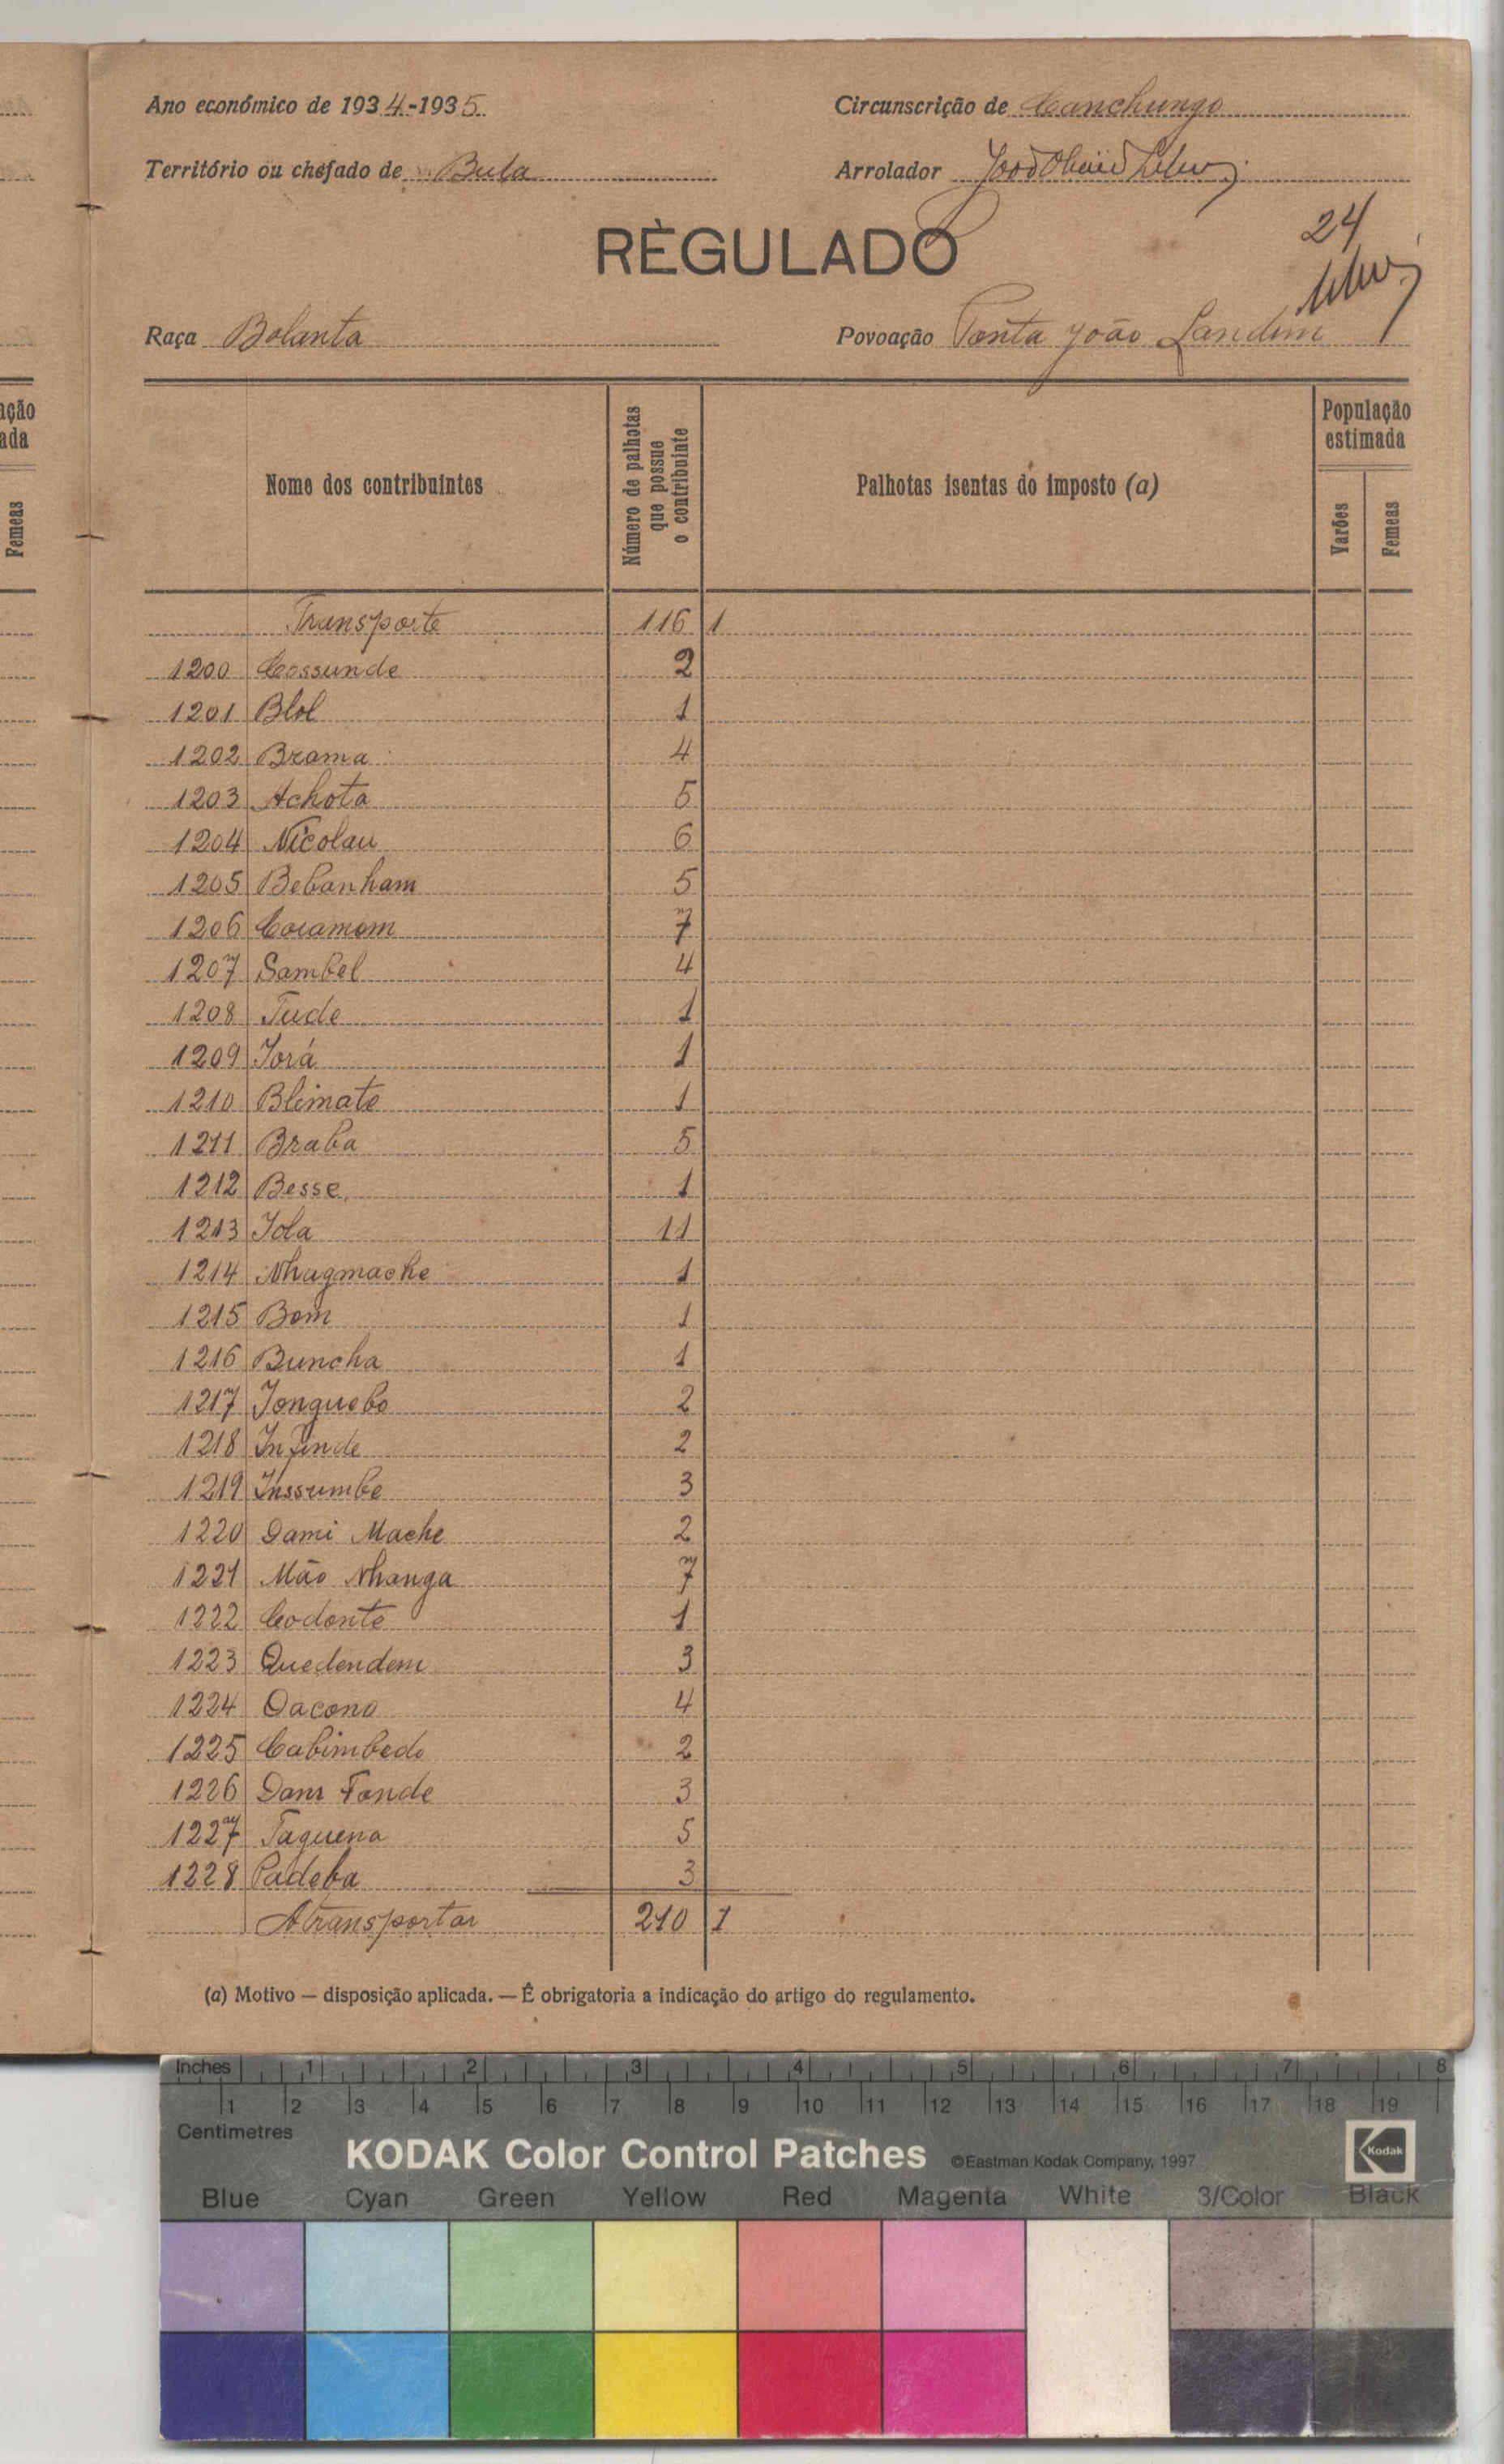 Ano económico de 1934-1935
Circunscrição de Canchungo
Território ou chefado de Bula
Arrolador
RÈGULADO
24
Raça Balanta
Povoação Ponta João Landim
ação
ada
Femeas
Nome dos contribuintes
Número de palhotas que possue o contribuinte
Palhotas isentas do imposto (a)
População estimada
Varões
Femeas
Transporte 116 1
1200 Cossunde 2
1201 Blol 1
1202 Brama 4
1203 Achota 5
1204 Nicolau 6
1205 Bebanham 5
1206 Coramom 7
1207 Sambel 4
1208 Tude 1
1209 Iorá 1
1210 Blimate 1
1211 Braba 5
1212 Besse 1
1213 Iola 11
1214 Nhagmache 1
1215 Bom 1
1216 Buncha 1
1217 Ionguebo 2
1218 Infinde 2
1219 Inssumbe 3
1220 Dami Mache 2
1221 Mão Nhanga 7
1222 Codonte 1
1223 Quedendem 3
1224 Dacono 4
1225 Cabimbedo 2
1226 Dam Fonde 3
1227 Taguena 5
1228 Padeba 3
A transportar 210 1
(a) Motivo — disposição aplicada. — É obrigatoria a indicação do artigo do regulamento.
Inches 1 2 3 4 5 6 7 8
1 2 3 4 5 6 7 8 9 10 11 12 13 14 15 16 17 18 19
Centimetres
KODAK Color Control Patches ©Eastman Kodak Company, 1997 Kodak
Blue Cyan Green Yellow Red Magenta White 3/Color Black